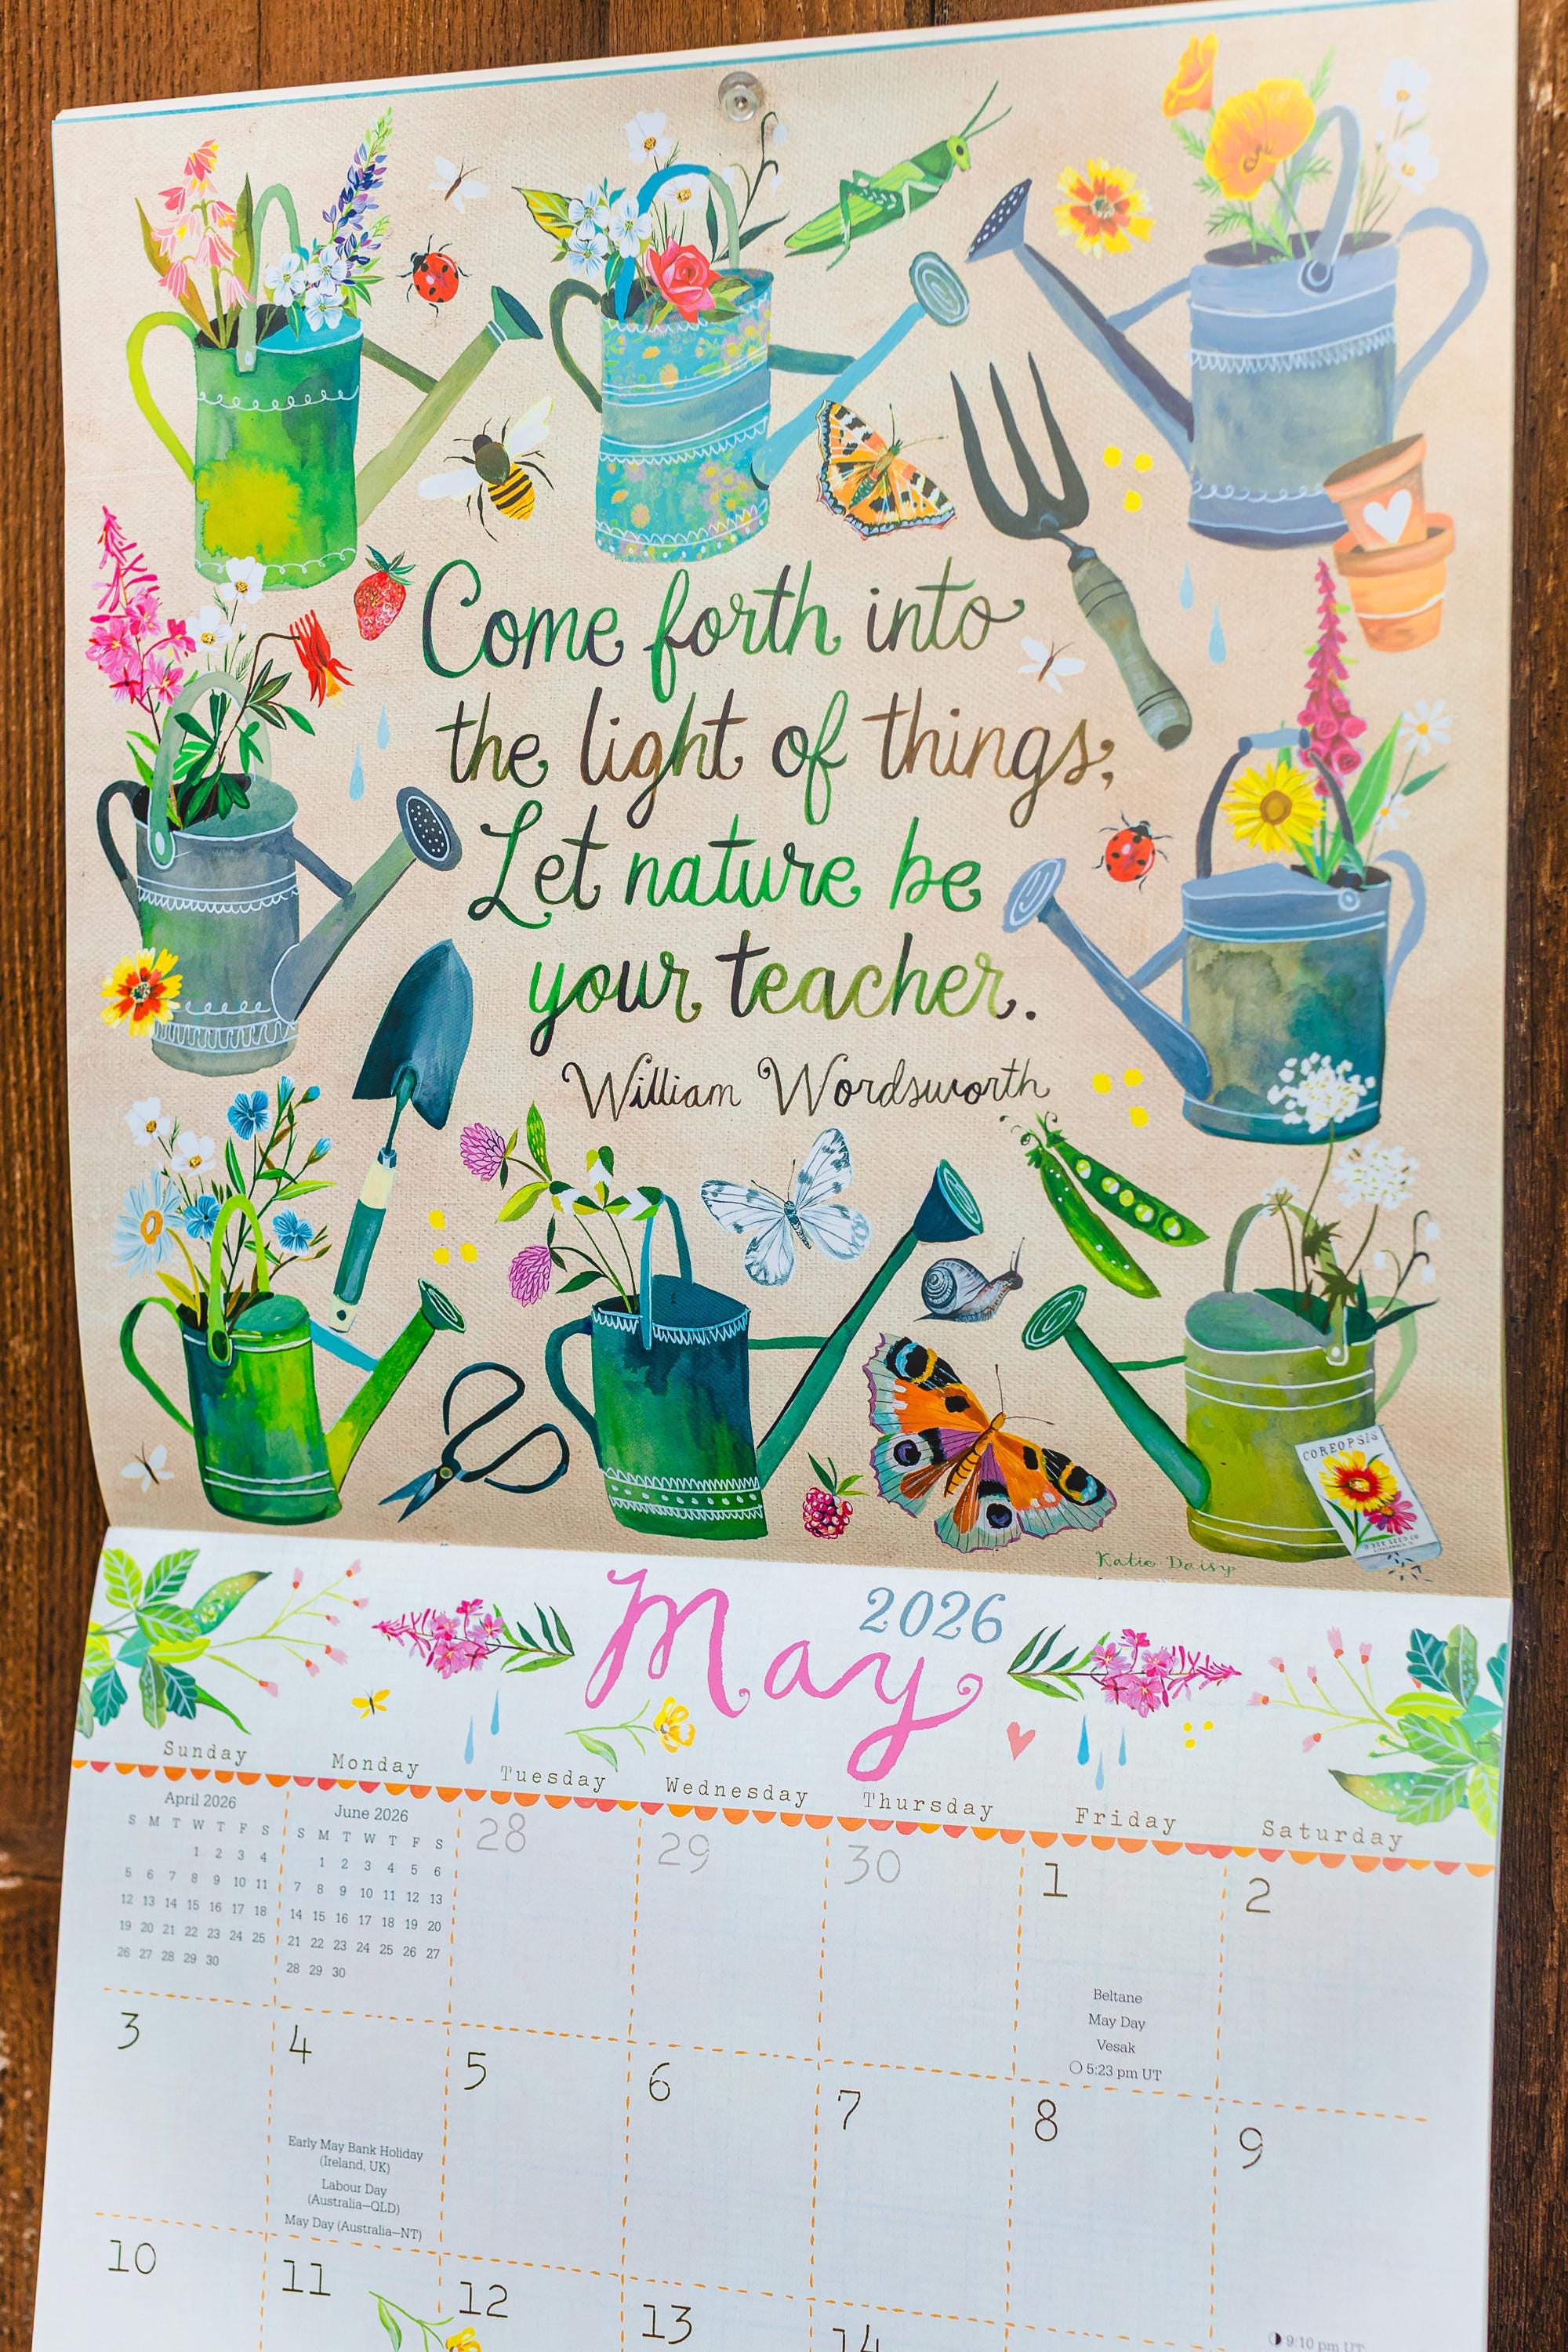 Come forth into
the light of things,
Let nature be
your teacher.
William Wordsworth
COREOPSIS
Katie Daisy
May 2026
Sunday Monday Tuesday Wednesday Thursday Friday Saturday
April 2026
S M T W T F S
1 2 3 4
5 6 7 8 9 10 11
12 13 14 15 16 17 18
19 20 21 22 23 24 25
26 27 28 29 30
June 2026
S M T W T F S
1 2 3 4 5 6
7 8 9 10 11 12 13
14 15 16 17 18 19 20
21 22 23 24 25 26 27
28 29 30
28 29 30 1 2
Beltane
May Day
Vesak
5:23 pm UT
3 4 5 6 7 8 9
Early May Bank Holiday
(Ireland, UK)
Labour Day
(Australia–QLD)
May Day (Australia–NT)
9:10 pm UT
10 11 12 13 14